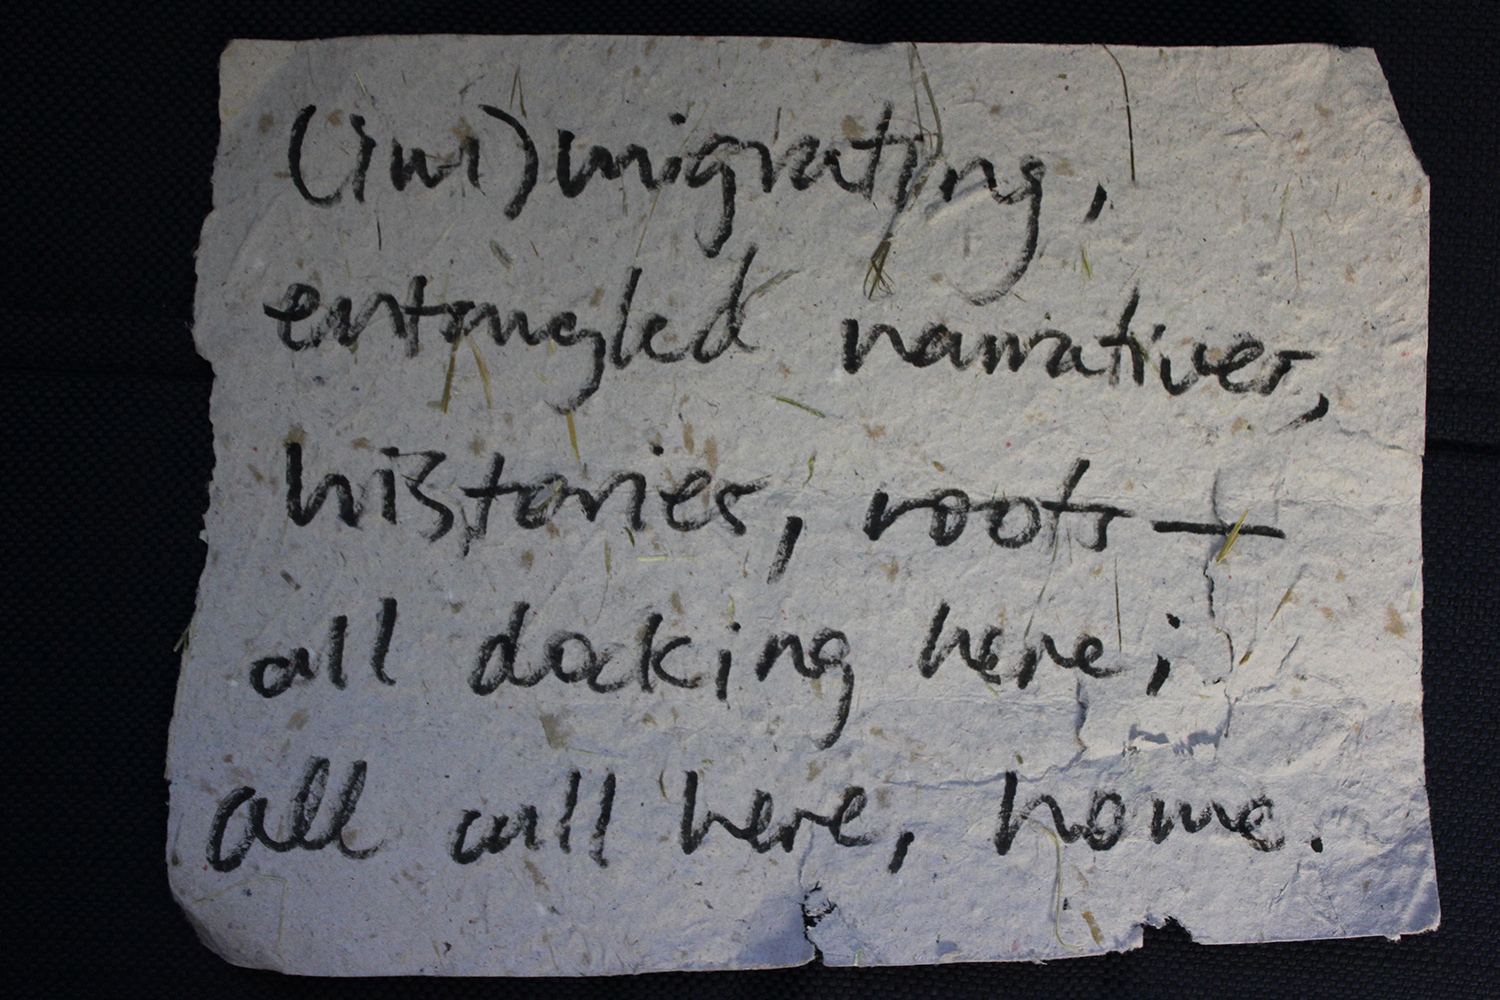 (im)migrating,
entangled narratives,
histories, roots—
all docking here;
all call here, home.